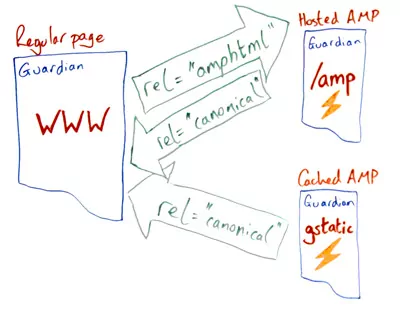 Regular page
Guardian
WWW
rel="amphtml"
rel="canonical"
Hosted AMP
Guardian
/amp
rel="canonical"
Cached AMP
Guardian
gstatic